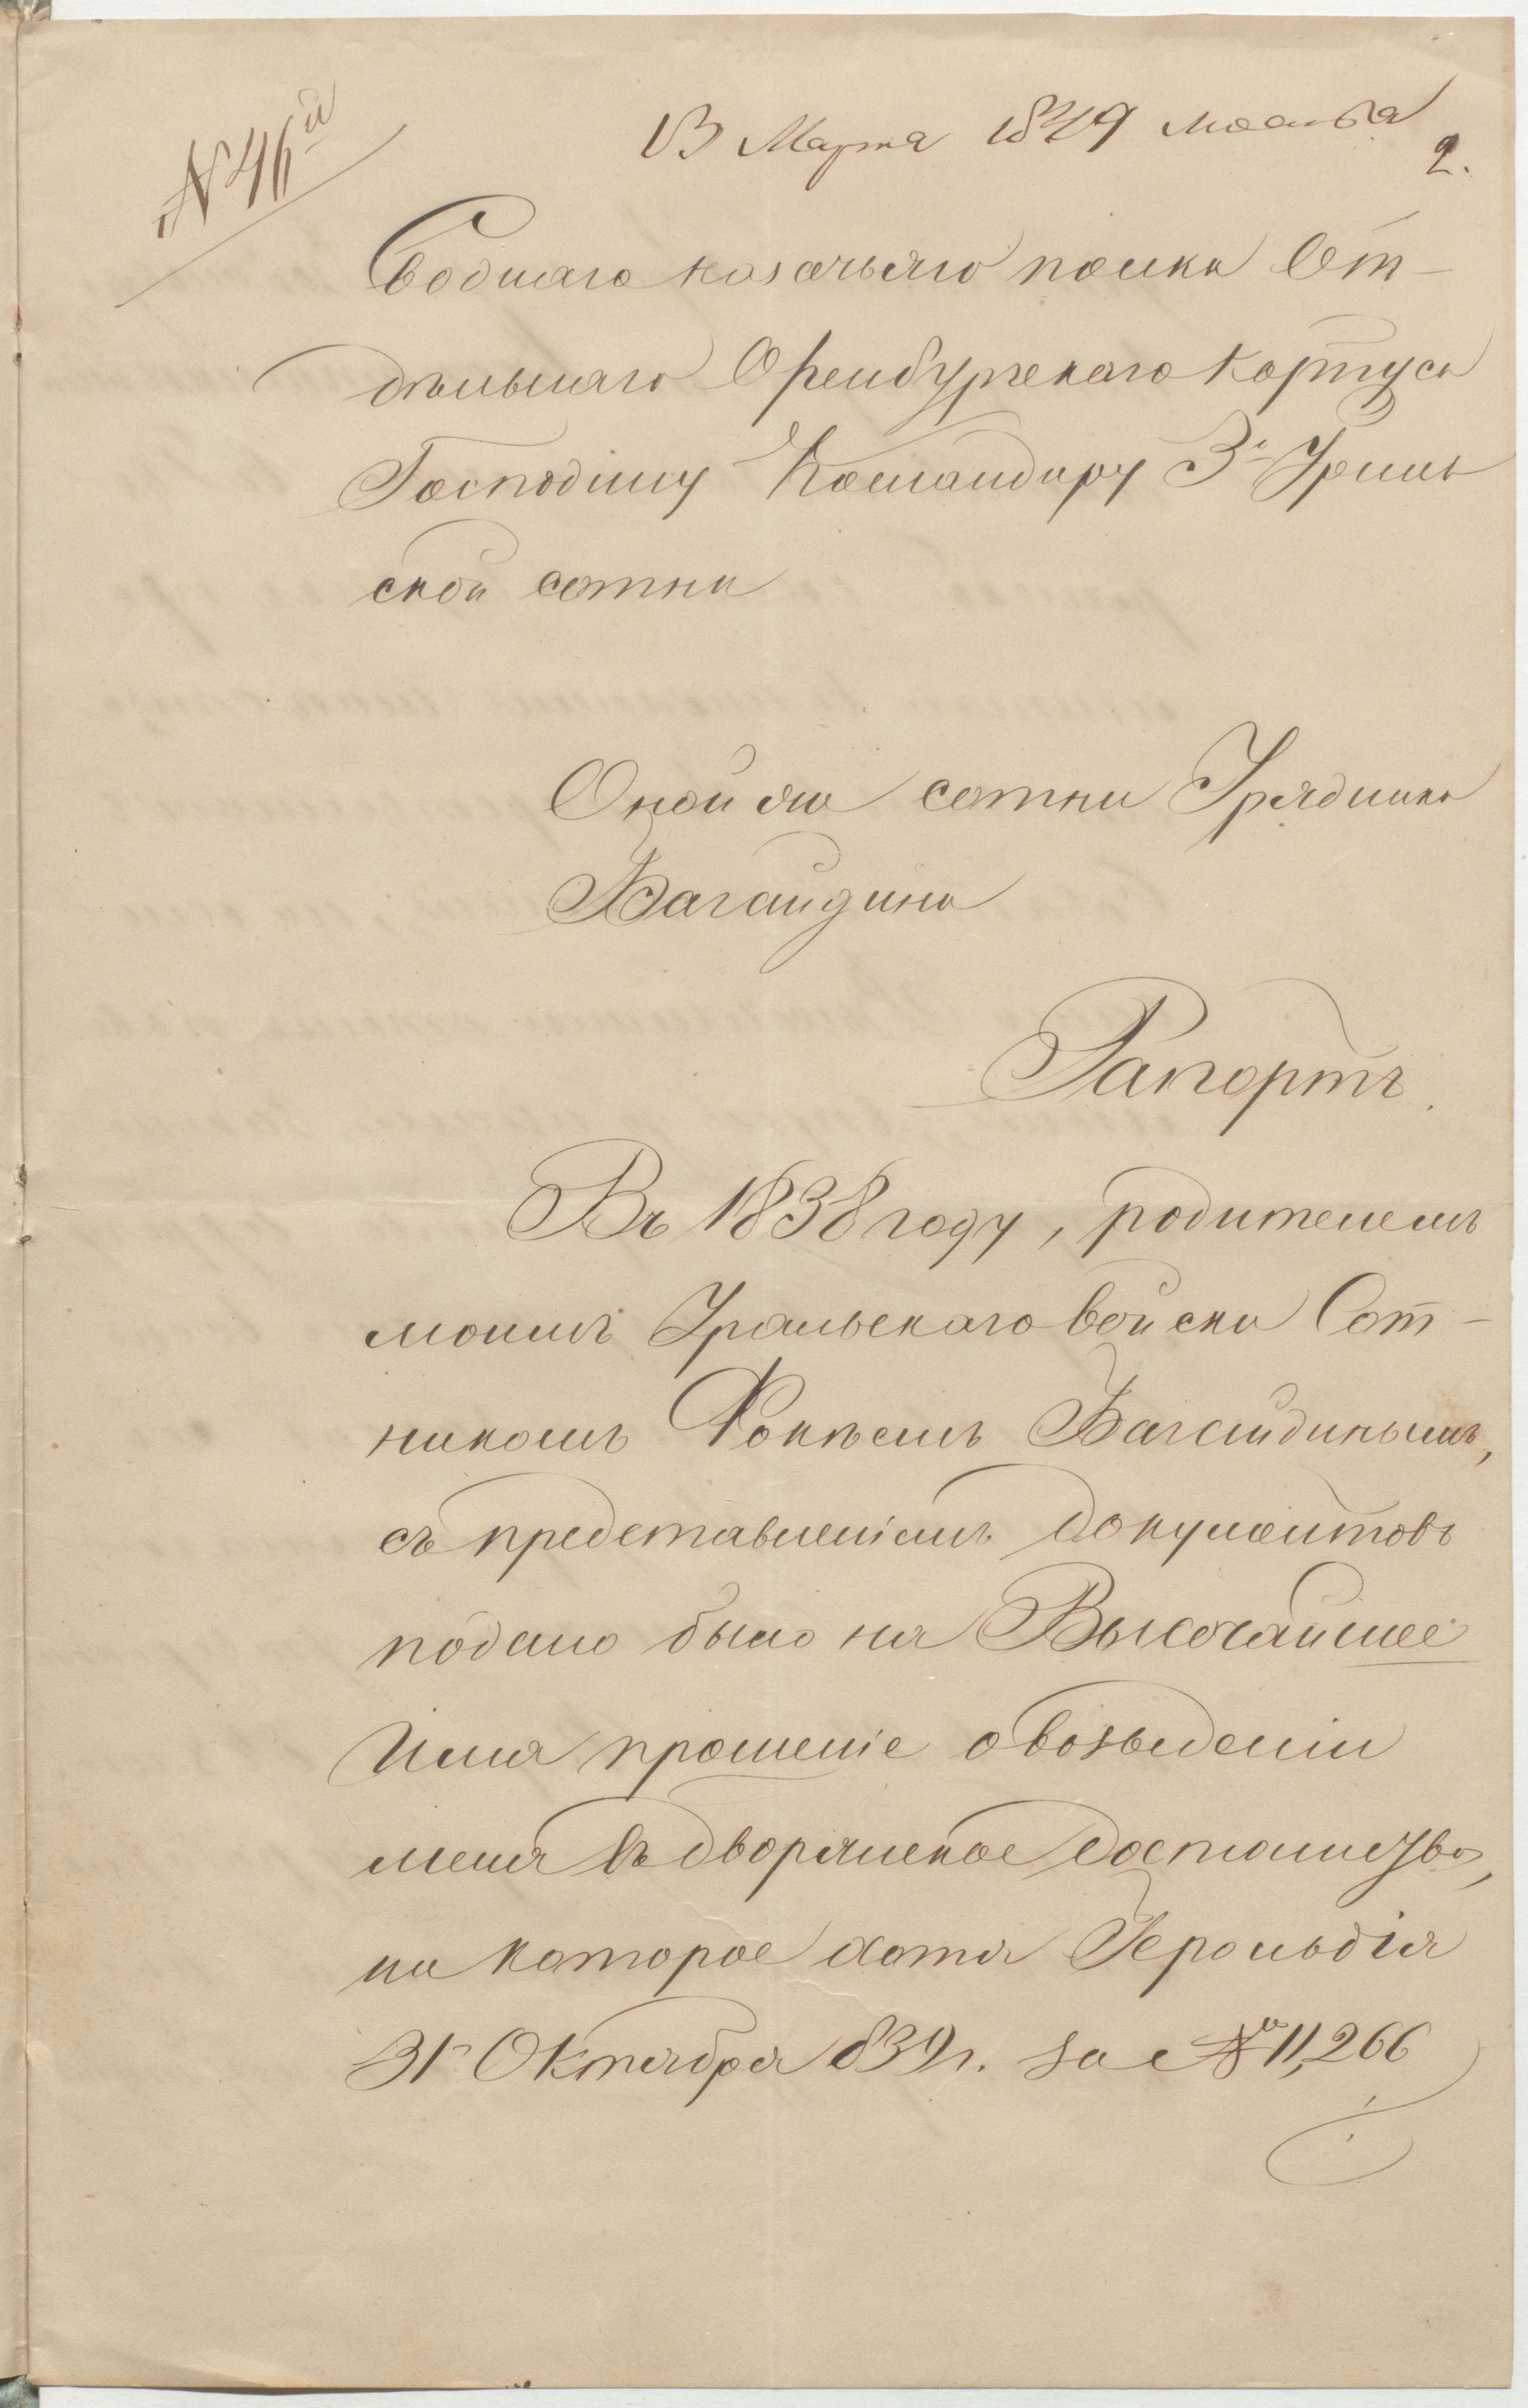 № 46й
13 Марта 1849 Москва
2.
Своднаго казачьяго полка От-
дѣльнаго Оренбургскаго Корпуса
Господину Командиру 3й Ураль
ской сотни
Оной же сотни Урядника
Багайдина
Рапортъ.
Въ 1838 году, родителемъ
моимъ Уральскаго войска Сот-
никомъ Фокѣемъ Багайдинымъ,
съ представленіемъ документовъ
подано было на Высочайшее
Имя прошеніе о возведеніи
меня въ дворянское достоинство,
на которое хотя Герольдія
31г Октября 839 г. за № 11,266